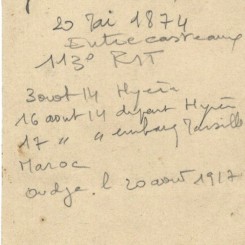 20 Mai 1874
Entrecasteaux
113º RIT
3 aout 14 Hyères
16 aout 14 depart Hyères
17 " " embarq Marseille
Maroc
Oudja. l 20 aout 1917